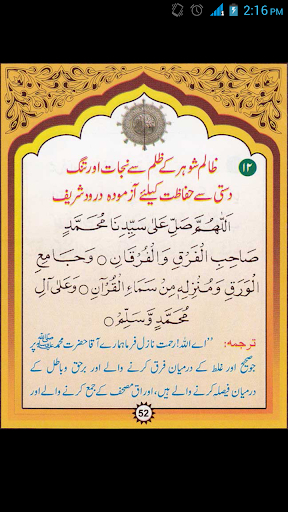 2:16 PM
۱۲
ظالم شوہر کے ظلم سے نجات اور تنگ
دستی سے حفاظت کیلئے آزمودہ درود شریف
اَللّٰهُمَّ صَلِّ عَلٰى سَيِّدِنَا مُحَمَّدٍ
صَاحِبِ الْفَرْقِ وَالْفُرْقَانِ ○ وَجَامِعِ
الْوَرَقِ وَمُنْزِلِهٖ مِنْ سَمَاءِ الْقُرْآنِ ○ وَعَلٰى آلِ
مُحَمَّدٍ وَّسَلِّمْ ○
ترجمہ: ''اے اللہ! رحمت نازل فرما ہمارے آقا حضرت محمد ﷺ پر
جو صحیح اور غلط کے درمیان فرق کرنے والے اور برحق و باطل کے
درمیان فیصلہ کرنے والے ہیں، اوراق مصحف کے جمع کرنے والے اور
52